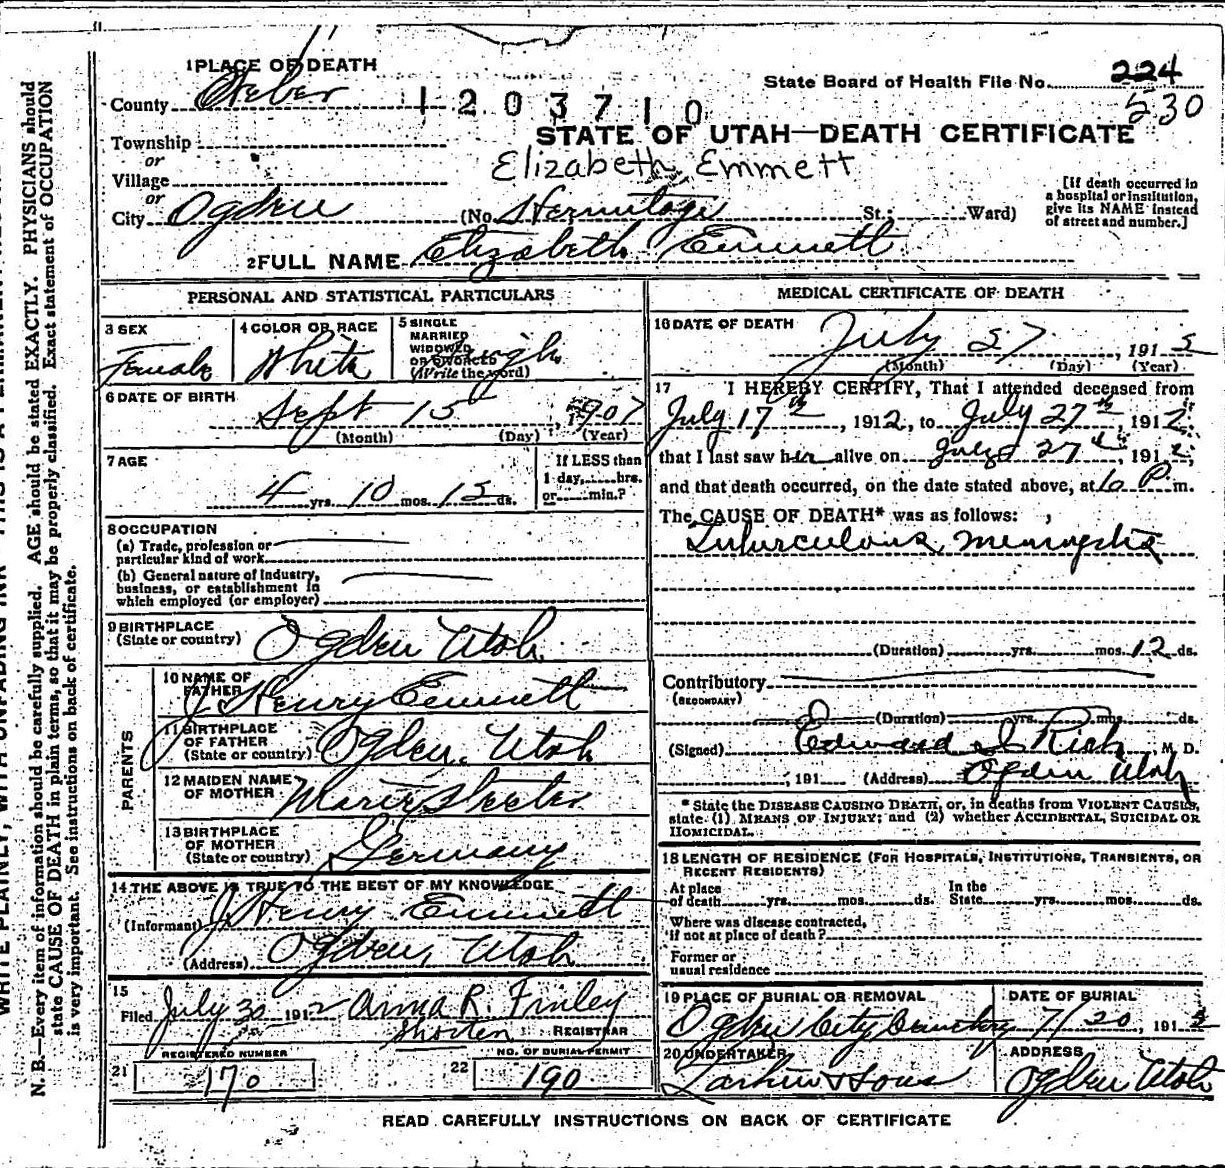 1 PLACE OF DEATH
State Board of Health File No. 224
County Weber 1203710 530
STATE OF UTAH—DEATH CERTIFICATE
Township
or
Elizabeth Emmett
Village
or
[If death occurred in
a hospital or institution,
give its NAME instead
of street and number.]
City Ogden (No. Hermitage St.; Ward)
2 FULL NAME Elizabeth Emmett
PERSONAL AND STATISTICAL PARTICULARS
3 SEX
Female
4 COLOR OR RACE
White
5 SINGLE
MARRIED
WIDOWED
OR DIVORCED
(Write the word)
Single
6 DATE OF BIRTH
Sept 15, 1907
(Month) (Day) (Year)
7 AGE
4 yrs. 10 mos. 15 ds.
If LESS than
1 day, hrs.
or min.?
8 OCCUPATION
(a) Trade, profession or
particular kind of work
(b) General nature of Industry,
business, or establishment in
which employed (or employer)
9 BIRTHPLACE
(State or country) Ogden Utah
PARENTS
10 NAME OF
FATHER J Henry Emmett
11 BIRTHPLACE
OF FATHER
(State or country) Ogden, Utah
12 MAIDEN NAME
OF MOTHER Marie
13 BIRTHPLACE
OF MOTHER
(State or country) Germany
14 THE ABOVE IS TRUE TO THE BEST OF MY KNOWLEDGE
(Informant) J. Henry Emmett
(Address) Ogden, Utah
15
Filed July 30 1912 Anna R. Finley
Shorten REGISTRAR
REGISTERED NUMBER
21 170
NO. OF BURIAL PERMIT
22 190
MEDICAL CERTIFICATE OF DEATH
16 DATE OF DEATH
July 27, 1912
(Month) (Day) (Year)
17 I HEREBY CERTIFY, That I attended deceased from
July 17th, 1912, to July 27th, 1912,
that I last saw her alive on July 27th, 1912,
and that death occurred, on the date stated above, at 6 P. m.
The CAUSE OF DEATH* was as follows:
Tuberculous Meningitis
(Duration) yrs. mos. 12 ds.
Contributory
(SECONDARY)
(Duration) yrs. mos. ds.
(Signed) Edward I Rich, M. D.
, 191 (Address) Ogden Utah
* State the DISEASE CAUSING DEATH, or, in deaths from VIOLENT CAUSES,
state (1) MEANS OF INJURY; and (2) whether ACCIDENTAL, SUICIDAL OR
HOMICIDAL.
18 LENGTH OF RESIDENCE (FOR HOSPITALS, INSTITUTIONS, TRANSIENTS, OR
RECENT RESIDENTS)
At place
of death yrs. mos. ds.
In the
State yrs. mos. ds.
Where was disease contracted,
if not at place of death?
Former or
usual residence
19 PLACE OF BURIAL OR REMOVAL
Ogden City Cemetery
DATE OF BURIAL
7/30, 1912
20 UNDERTAKER
Larkin & Sons
ADDRESS
Ogden Utah
READ CAREFULLY INSTRUCTIONS ON BACK OF CERTIFICATE
WRITE PLAINLY, WITH UNFADING INK—THIS IS A PERMANENT
N. B.—Every item of information should be carefully supplied. AGE should be stated EXACTLY. PHYSICIANS should
state CAUSE OF DEATH in plain terms, so that it may be properly classified. Exact statement of OCCUPATION
is very important. See instructions on back of certificate.